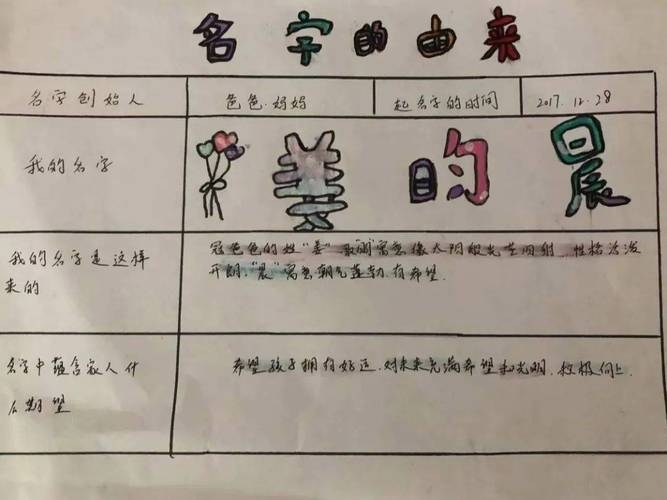 名字的由来
名字创始人
爸爸.妈妈
起名字的时间
2017.12.28
我的名字
姜昀晨
我的名字是这样
来的
冠爸爸的姓"姜" 取"昀"寓意像太阳般光芒四射.性格活泼
开朗."晨"寓意朝气蓬勃.有希望.
名字中蕴含家人什
么期望
希望孩子拥有好运.对未来充满希望和光明.积极向上.